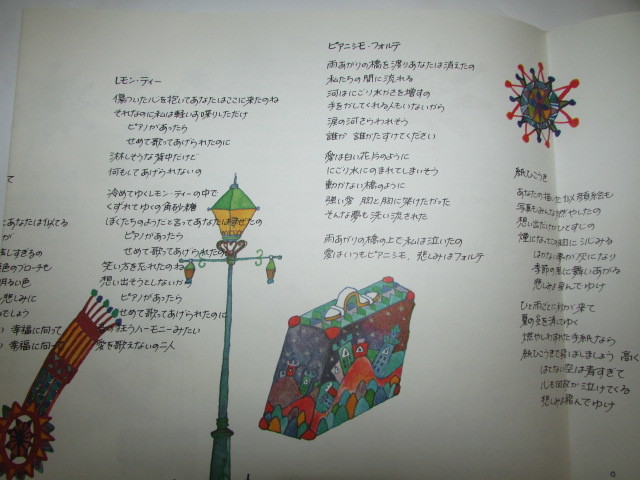 て
にあなたは似てる
が
話しすぎるの
色のブローチも
明るい色
悲しみに
でしょう
い 幸福に向って
い 幸福に向って
レモン・ティー
傷ついた心を抱いてあなたはここに来たのね
それなのに私は軽いお喋りしただけ
ピアノがあったら
せめて歌ってあげられたのに
淋しそうな背中だけど
何もしてあげられないの
冷めてゆくレモン・ティーの中で
くずれてゆくの角砂糖
ぼくたちのようだと言ってあなたはまぜたの
ピアノがあったら
せめて歌ってあげられたのに
笑い方を忘れたのね
想い出そうとしないから
ピアノがあったら
せめて歌ってあげられたのに
狂うハーモニーみたい
愛を歌えないの二人
ピアニシモ・フォルテ
雨あがりの橋を渡りあなたは消えたの
私たちの間に流れる
河はにごり水かさを増すの
手をかしてくれる人もいないから
涙の河さらわれそう
誰か 誰かたすけてください
愛は白い花片のように
にごり水にのまれてしまいそう
動かない橋のように
強い愛 胸と胸に架けたかった
そんな夢も洗い流された
雨あがりの橋の上で私は泣いたの
愛はいつもピアニシモ、悲しみはフォルテ
紙ひこうき
あなたの描いた似顔絵も
写真もみんな燃やしたの
想い出だけがひとすじの
煙になってこの胸にしみる
はかない夢が灰になり
季節の風に舞いあがる
悲しみよ飛んでゆけ
ひと雨ごとに秋が来て
夏の空を消してゆく
燃やしわすれた手紙なら
紙ひこうきで飛ばしましょう 高く
はてない空は青すぎて
心も何故か泣けてくる
悲しみよ飛んでゆけ